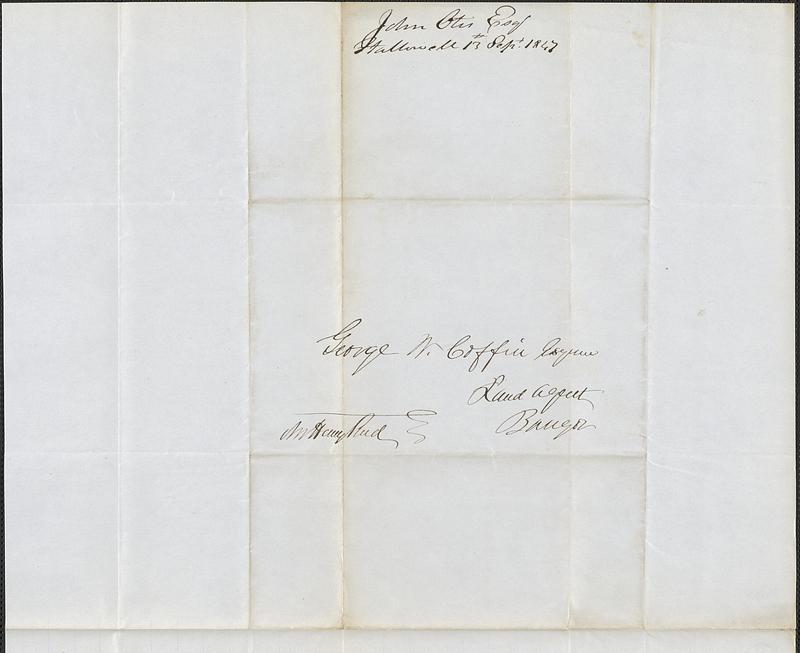 John Otis Esqr
Hallowell 13th Sept. 1847
George W. Coffin Esquire
Land Agent
Bangor
Mr Henry Reed